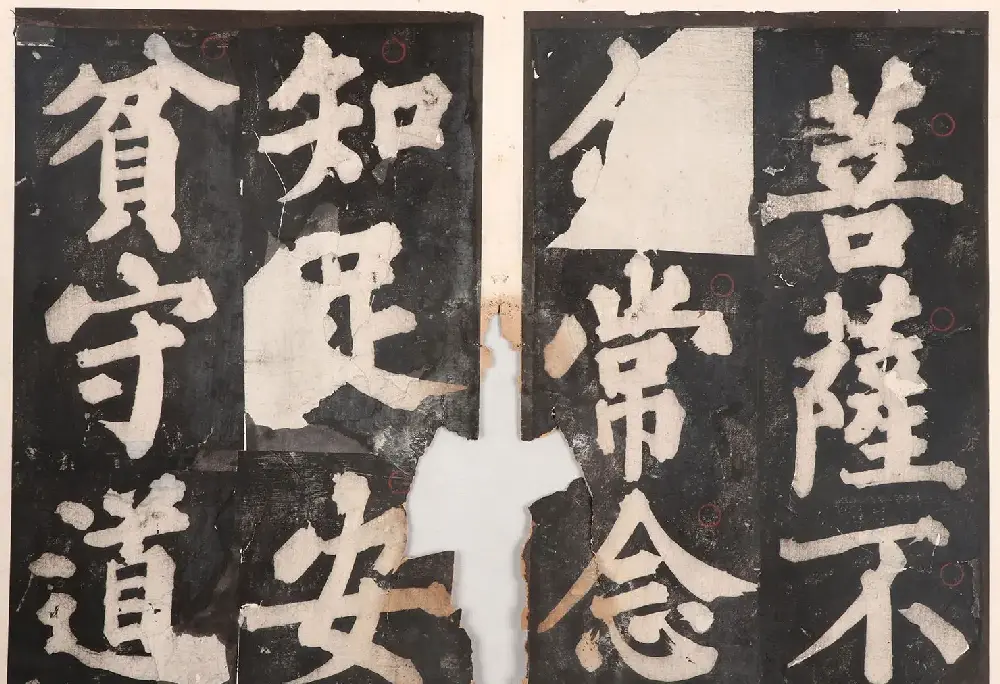 菩薩不
常念
知足安
貧守道